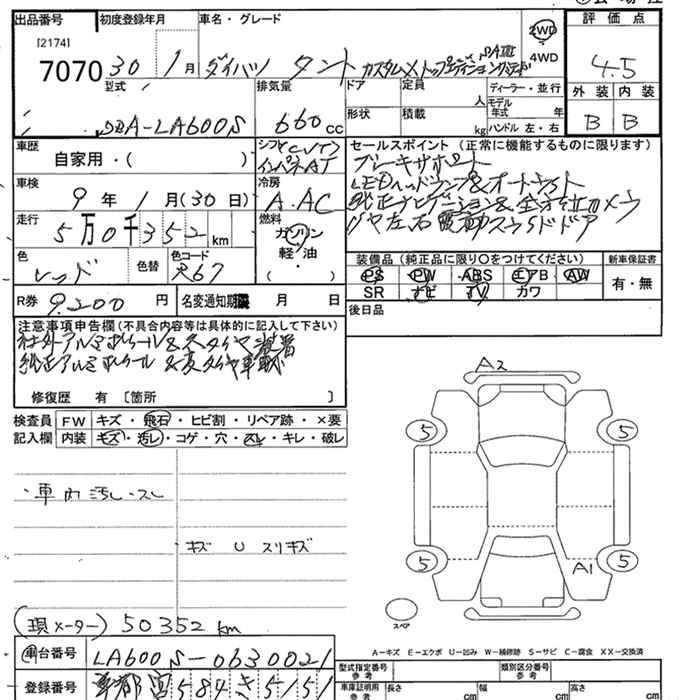 出品番号 初度登録年月 車名・グレード 評価点
[2174]
7070 30年 1月 ダイハツ タント カスタムX トップエディションSAⅢ 2WD 4WD 4.5
型式 排気量 ドア 定員 人 ディーラー・並行 外装 内装
DBA-LA600S 660cc 形状 積載 kg モデル年式 年 ハンドル 左・右 B B
車歴 自家用・( ) シフト CVT インパネAT
セールスポイント (正常に機能するものに限ります)
ブレーキサポート
LEDヘッドランプ&オートライト
純正ナビゲーション&全方位カメラ
リヤ左右電動スライドドア
車検 9年 1月(30日) 冷房 A.AC
走行 5万0千352km 燃料 ガソリン
軽・油
( )
色 レッド 色替 色コード R67
装備品 (純正品に限り○をつけてください) 新車保証書
PS PW ABS エアB AW 有・無
SR ナビ TV カワ
R券 9,200円 名変通知期限 月 日
後日品
注意事項申告欄(不具合内容等は具体的に記入して下さい)
社外アルミホイール&スタイヤ装着
純正アルミホイール&夏タイヤ車載
修復歴 有 [箇所 ]
検査員 FW キズ・飛石・ヒビ割・リペア跡・×要
記入欄 内装 キズ・汚レ・コゲ・穴・スレ・キレ・破レ
・車内汚レ・スレ
キズ U スリキズ
(現メーター) 50352km
A2
5 5
5 5
A1
スペア
A-キズ E-エクボ U-凹み W-補修跡 S-サビ C-腐食 XX-交換済
車台番号 LA600S-0630021
型式指定番号 類別区分番号
登録番号 584 き 5151
車庫証明用参考 長さ cm 幅 cm 高さ cm